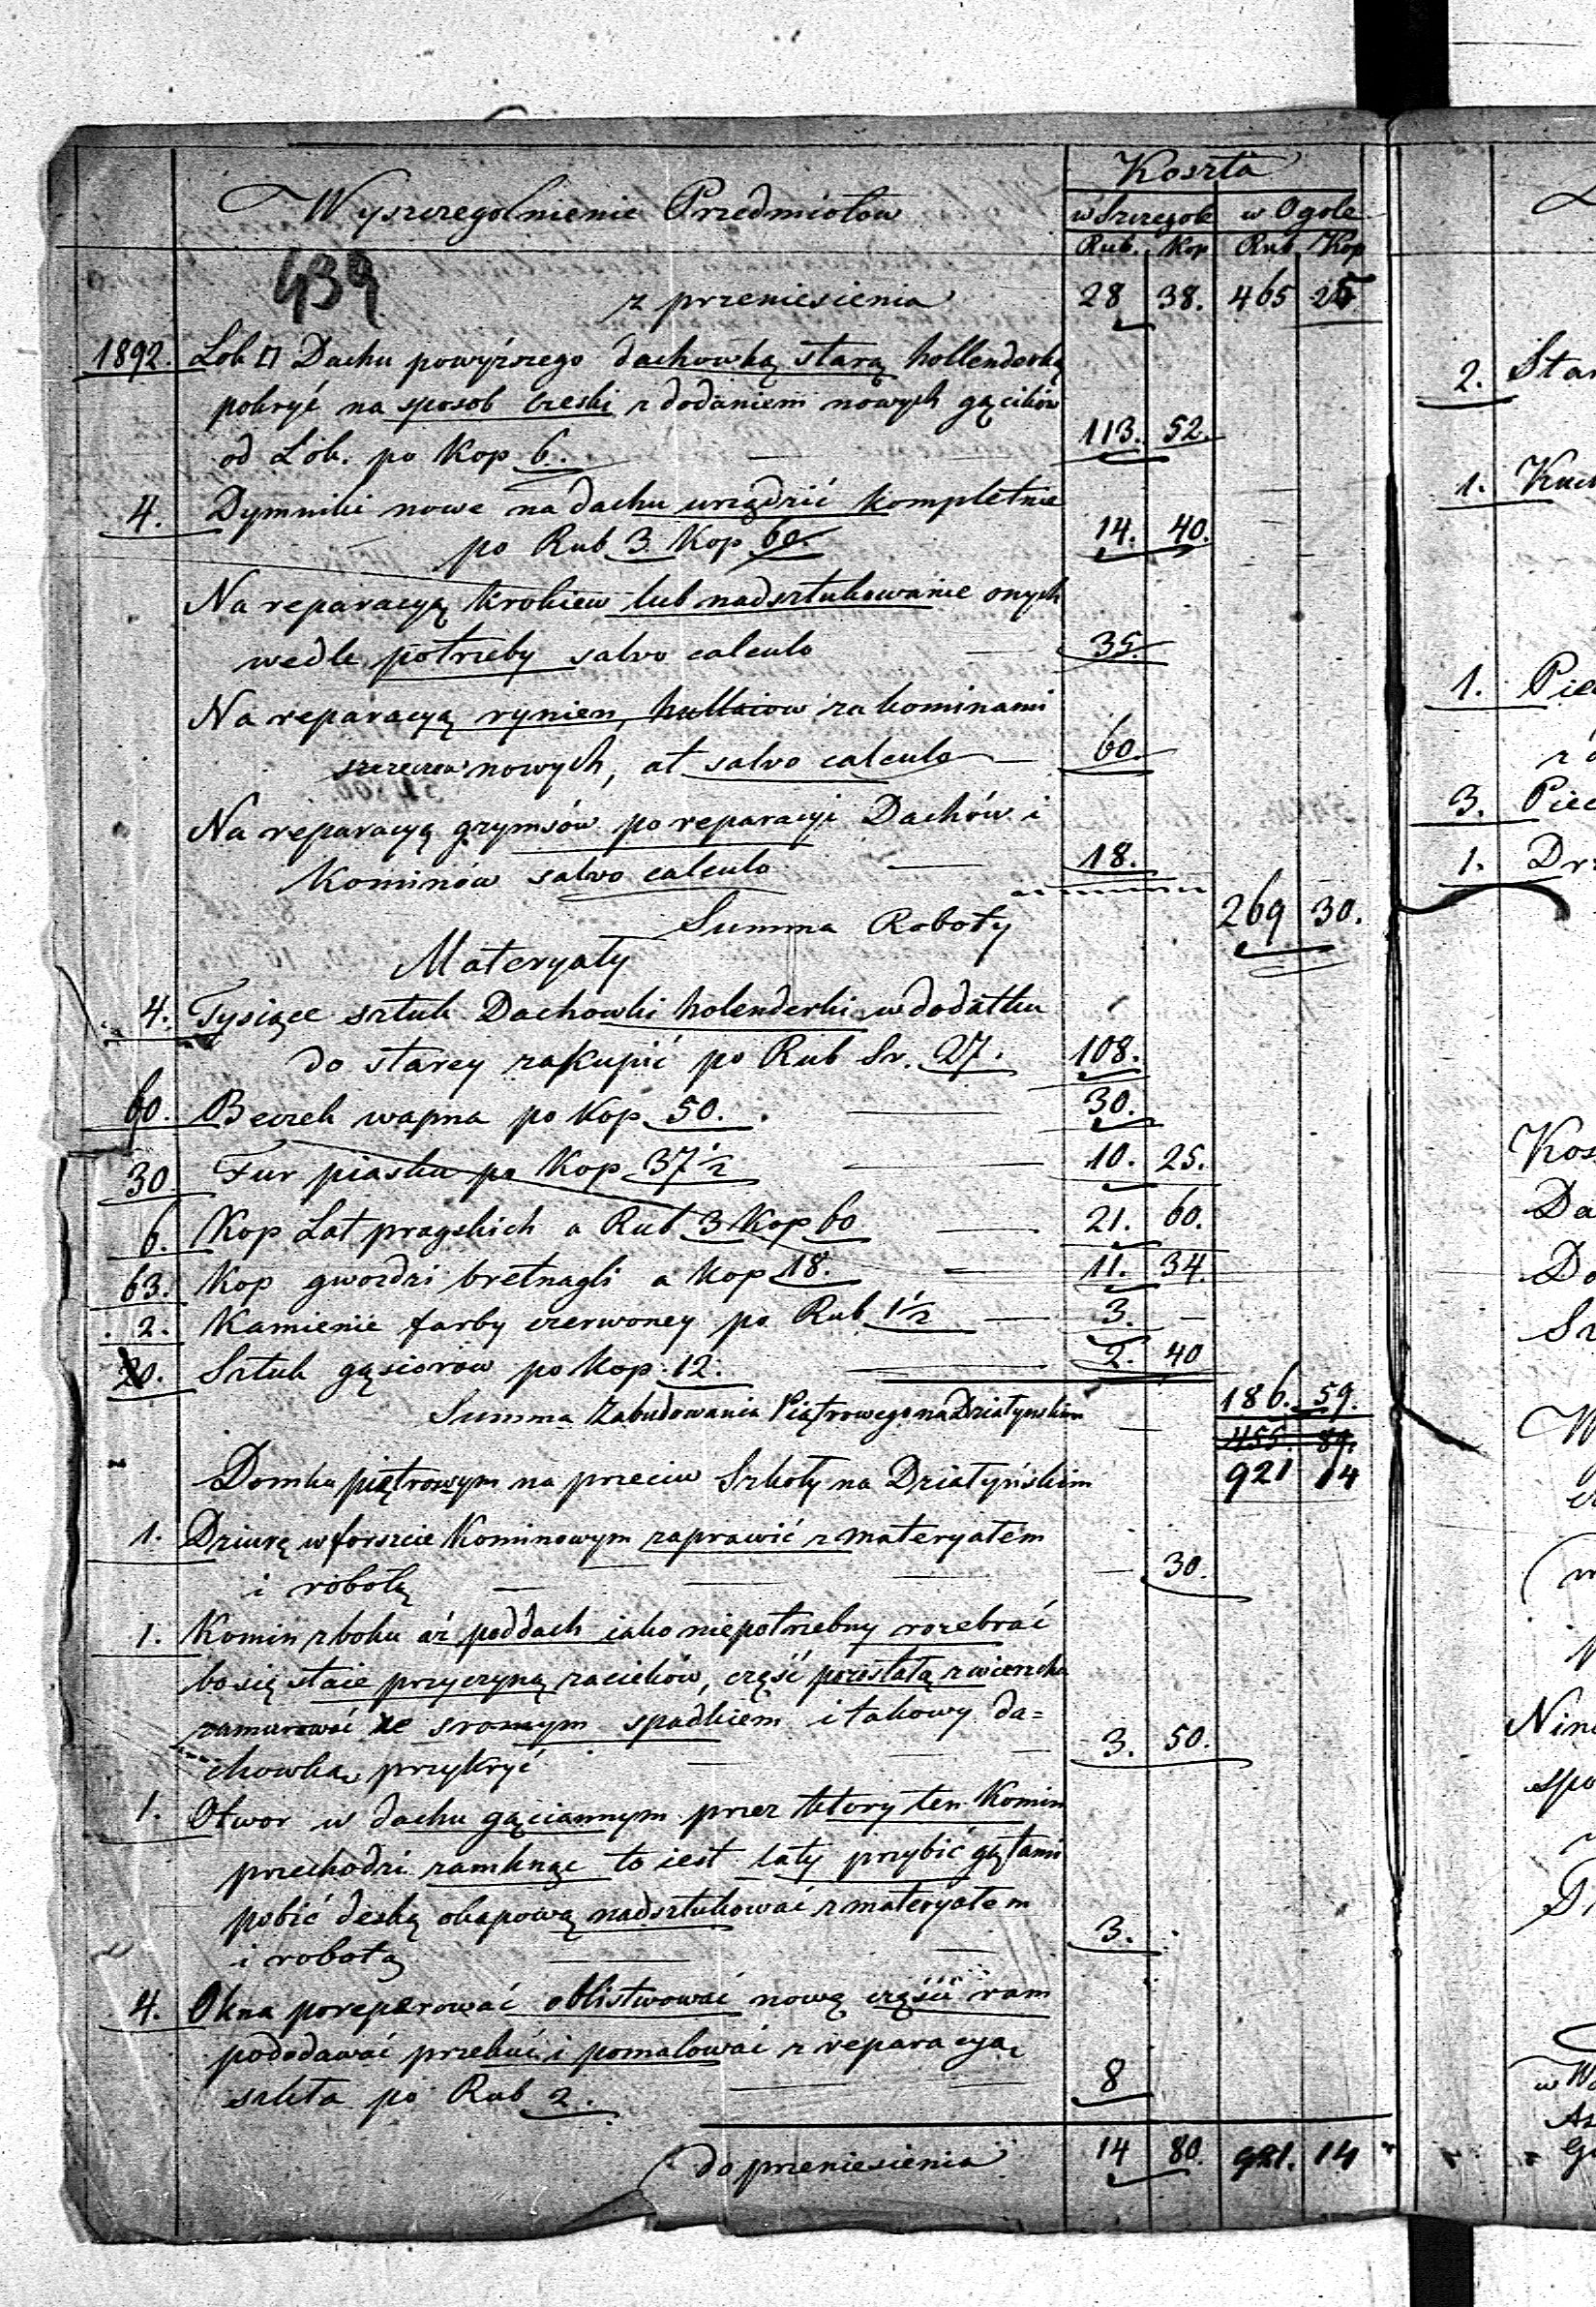 Wyszczegolnienie Przedmiotow
Koszta
w Szczegole w Ogole
Rub. Kop Rub. Kop
439
z przeniesienia 28 38. 465 25
1892. Łok □ Dachu powyższego dachowką starą hollenderką
pokryć na sposob Czeski z dodaniem nowych gącików
od Łok. po Kop 6. 113. 52.
4. Dymniki nowe na dachu urządzić kompletnie
po Rub 3 Kop 60. 14. 40.
Na reparacyą krokiew lub nadsztukowanie onych
wedle potrzeby salvo calculo 35.
Na reparacyą rynien, za kominami
nowych, at salvo calculo 60.
Na reparacyą gzymsów po reparacyi Dachów i
Kominów salvo calculo 18.
Summa Roboty 269 30.
Materyały
4. Tysiące sztuk Dachowki holenderki w dodatku
do starey zakupić po Rub Sr. 27. 108.
60. Beczek wapna po Kop 50. 30.
30 Fur piasku po Kop 37 1/2 10. 25.
6. Kop Łat pragskich a Rub 3 Kop 60 21. 60.
63. Kop gwozdzi bretnagli a kop 18. 11. 34.
2. Kamienie farby czerwoney po Rub 1 1/2 3. —
20. Sztuk gąsiorow po kop. 12. 2. 40
186. 59.
Summa Zabudowania Piątrowego na Działynskim
455. 89.
921 14
Domku piętrowym na przeciw Szkoły na Działyńskim
1. Dziurę w forszcie Kominowym zaprawić z materyałem
i robotą — 30.
1. Komin z boku aż pod dach iako niepotrzebny rozebrać
bo się staie przyczyną zacieków, część pozostałą z wierzchu
zamurować ze spadkiem i takowy da=
chowką przykryć 3. 50.
1. Otwor w dachu gąciannym przez ktory ten Komin
przechodzi zamknąc to iest łaty przybić gątami
pobić deską okapową nadsztukować z materyałem
i robotą 3.
4. Okna poreperować oblistwować nową część ram
pododawać przekuć i pomalować z reparacyą
szkła po Rub 2. 8
do przeniesienia 14 80. 921. 14
2. Star
1.
1. Piec
3. Piec
1.